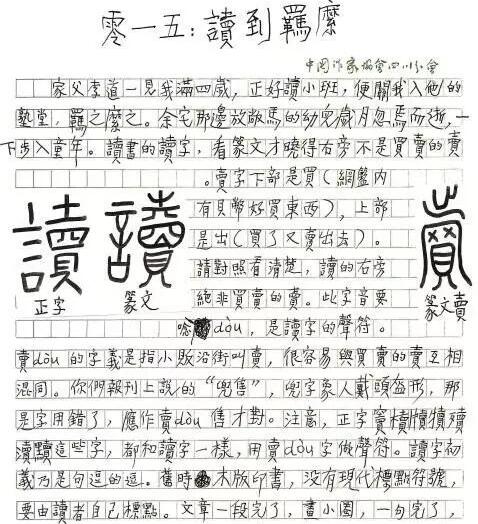 零一五：讀到羈縻
中国作家協會四川分會
家父李道一見我滿四歲，正好讀小班，便關我入他的
塾堂，羈之縻之。余宅那邊放敞馬的幼兒歲月忽焉而逝，一
下步入童年。讀書的讀字，看篆文才曉得右旁不是買賣的賣
。賣字下部是買（網盤内
有貝幣好買東西），上部
是出（買了又賣出去）。
請對照看清楚，讀的右旁
絕非買賣的賣。此字音要
唸dòu，是讀字的聲符。
讀
正字
讀
篆文
賣
篆文賣
賣dòu 的字義是指小販沿街叫賣，很容易與買賣的賣互相
混同。你們報刊上説的“兜售”，兜字象人戴頭盔形，那
是字用錯了，應作賣dòu 售才對。注意，正字竇櫝犢牘殰
瀆黷這些字，都和讀字一樣，用賣dòu字做聲符。讀字初
義乃是句逗的逗。舊時木版印書，没有現代標點符號，
要由讀者自己標點。文章一段完了，畫小圈，一句完了，